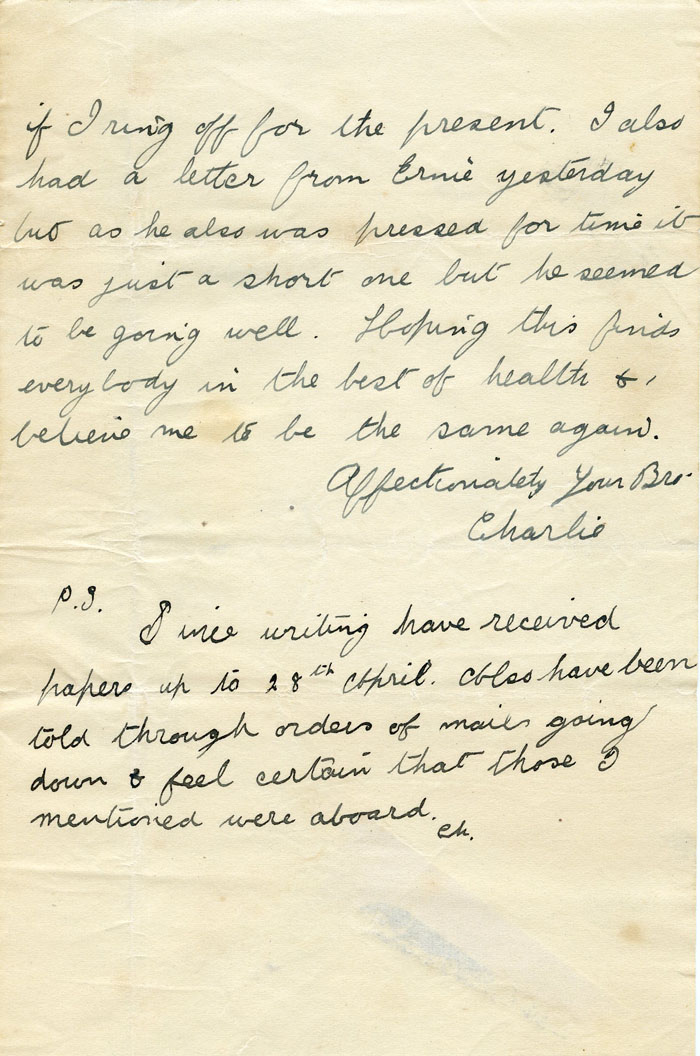 if I ring off for the present. I also
had a letter from Ernie yesterday
but as he also was pressed for time it
was just a short one but he seemed
to be going well. Hoping this finds
everybody in the best of health &,
believe me to be the same again.
Affectionately Your Bro.
Charlie
P.S.
Since writing have received
papers up to 28th April. Also have been
told through orders of mails going
down & feel certain that those I
mentioned were aboard.
Ch.